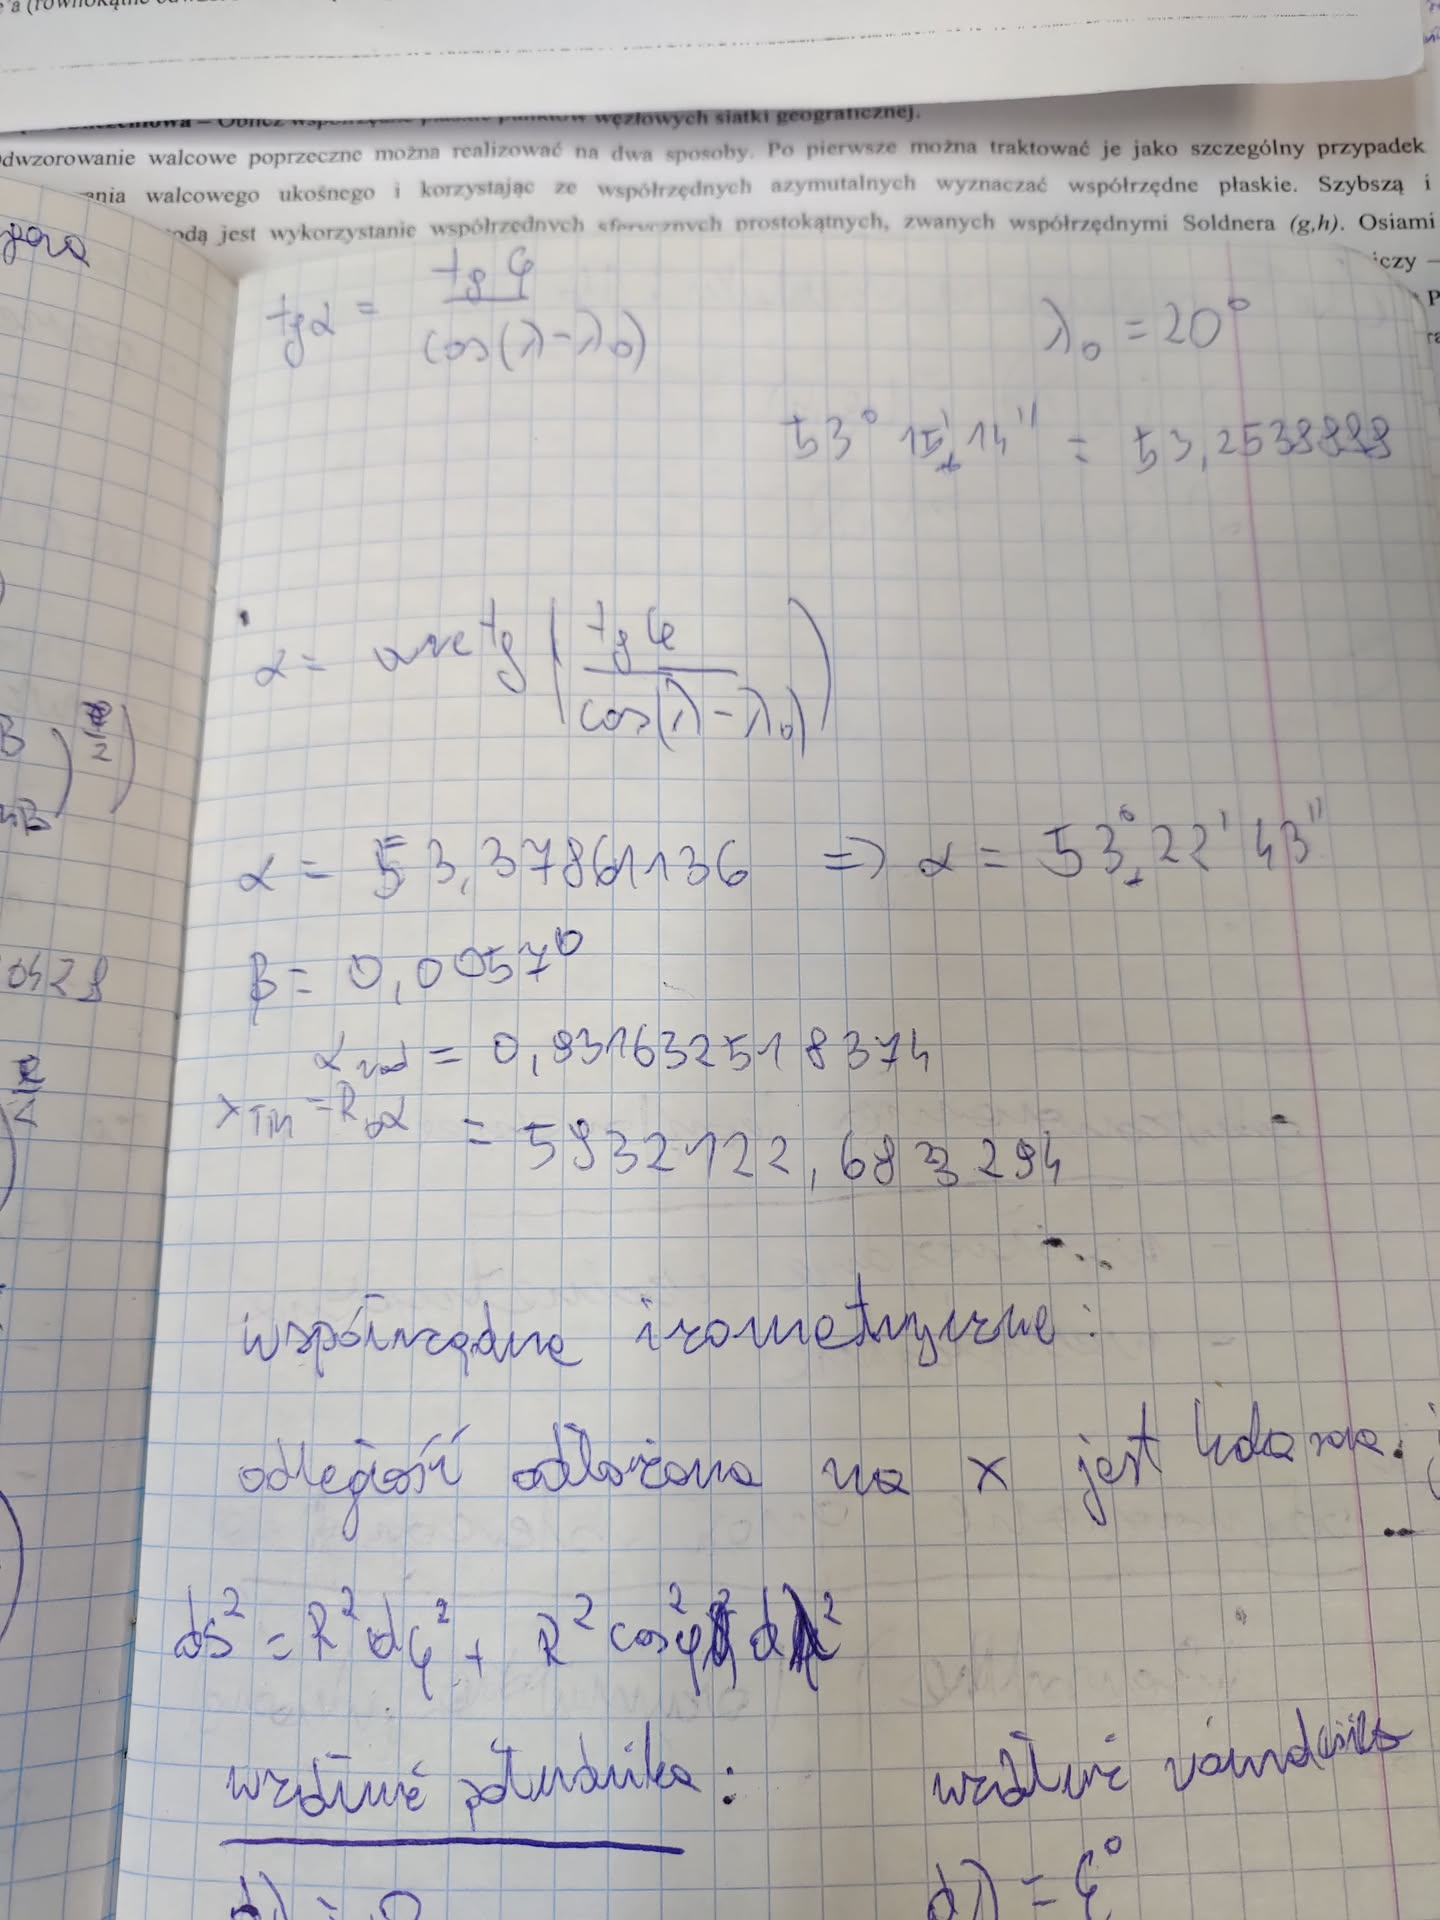 węzłowych siatki geograficznej.
dwzorowanie walcowe poprzeczne można realizować na dwa sposoby. Po pierwsze można traktować je jako szczególny przypadek
ania walcowego ukośnego i korzystając ze współrzędnych azymutalnych wyznaczać współrzędne płaskie. Szybszą i
odą jest wykorzystanie współrzędnych sferycznych prostokątnych, zwanych współrzędnymi Soldnera (g,h). Osiami
iczy –
tg α = tg φ / cos(λ-λ₀)
λ₀ = 20°
53° 15' 14" = 53,2538888
α = arctg (tg φ / cos(λ-λ₀))
α = 53,37861136 => α = 53° 22' 43"
β = 0,00570
α rad = 0,931632518374
x TM = R₀α = 5932122,683294
współrzędne izometryczne:
odległość odłożona na x jest
ds² = R² dφ² + R² cos²φ dλ²
wzdłuż południka: wzdłuż równoleżnika
dλ = 0